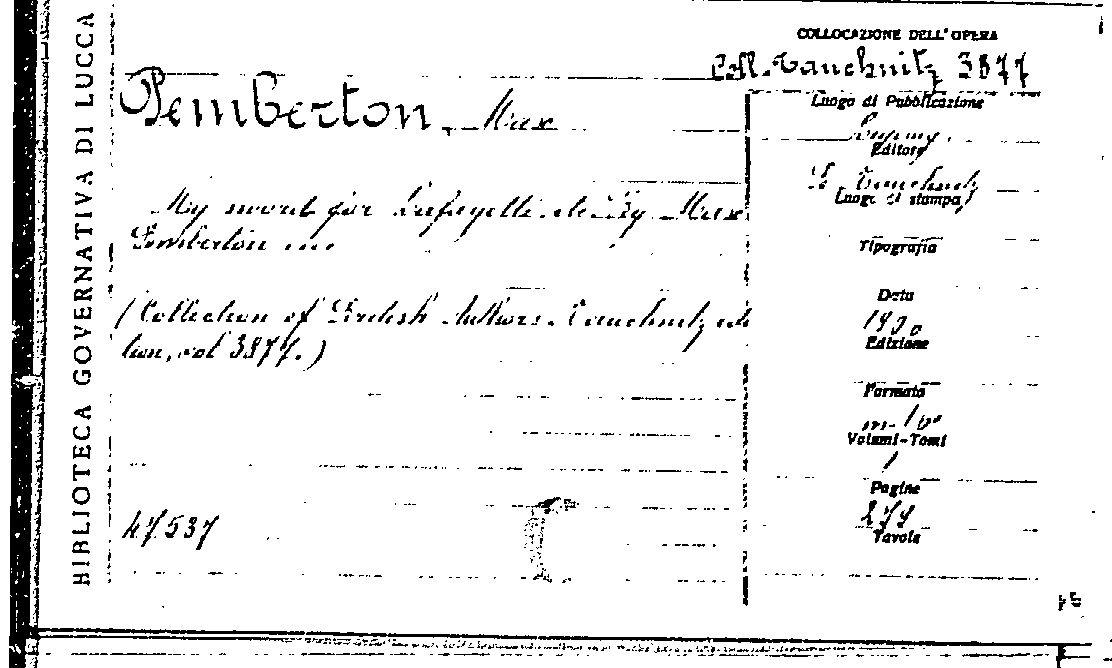 BIBLIOTECA GOVERNATIVA DI LUCCA
COLLOCAZIONE DELL'OPERA
Coll. Tauchnitz 3877
Pemberton, Max
My sword for Lafayette by Max
Pemberton
(Collection of British Authors. Tauchnitz edi
tion, vol 3877.)
47537
Luogo di Pubblicazione
Editore
Tauchnitz
Luogo di stampa
Tipografia
Data
Edizione
Formato
in-16°
Volumi-Tomi
1
Pagine
279
Tavole